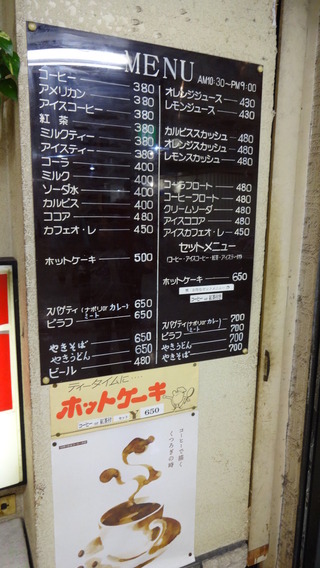 MENU
AM10:30~PM9:00
コーヒー 380
アメリカン 380
アイスコーヒー 380
紅茶 380
ミルクティー 380
アイスティー 380
コーラ 400
ミルク 400
ソーダ水 400
カルピス 400
ココア 480
カフェオ・レ 450
ホットケーキ 500
スパゲティ(ナポリor カレー) 650
ミート
ピラフ 650
やきそば 650
やきうどん 650
ビール 480
オレンジジュース 430
レモンジュース 430
カルピススカッシュ 480
オレンジスカッシュ 480
レモンスカッシュ 480
コーラフロート 480
コーヒーフロート 480
クリームソーダ 480
アイスココア 480
アイスカフェオ・レ 450
セットメニュー
(コーヒー・アイスコーヒー・紅茶・アイスティー付)
ホットケーキ 650
コーヒー or 紅茶付
スパゲティ(ナポリor カレー) 700
ミート
ピラフ 700
やきうどん 700
やきそば 700
ティータイムに…
ホットケーキ
コーヒー or 紅茶付 セット 650
コーヒーで描く
くつろぎの時